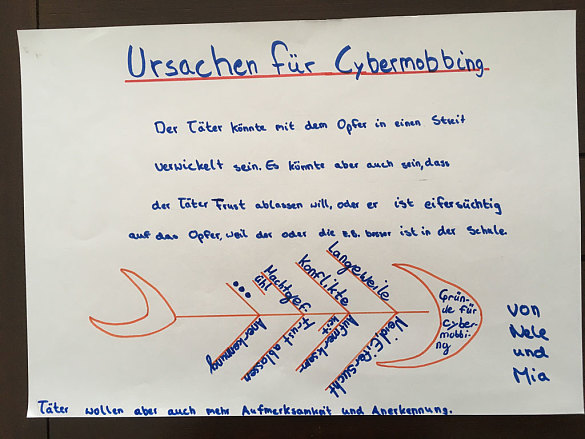 Ursachen für Cybermobbing
Der Täter könnte mit dem Opfer in einen Streit
verwickelt sein. Es könnte aber auch sein, dass
der Täter Frust ablassen will, oder er ist eifersüchtig
auf das Opfer, weil der oder die z.B. besser ist in der Schule.
...
Machtgef-
ühl
Konflikte
Langeweile
Anerkennung
Frust ablassen
Aufmerksam-
keit
Neid, Eifersucht
Grün-
de für
Cyber-
mobbi-
ng
von
Nele
und
Mia
Täter wollen aber auch mehr Aufmerksamkeit und Anerkennung.